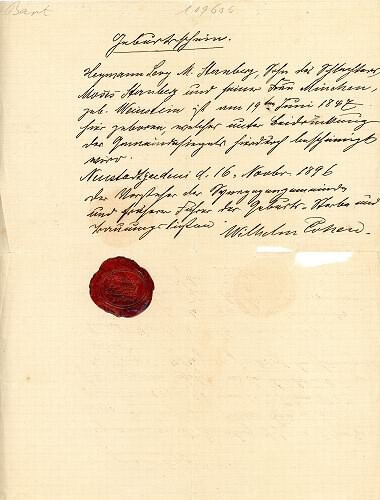 Bart 109656
Geburtsschein.
Heymann Levy M. Stanberg, Sohn des Schlachters
Moses Stanberg und seiner Frau Minchen,
geb. Weinstein ist am 19ten Juni 1847
hier geboren, welches unter Beidrückung
des Gemeindesiegels hierdurch bescheinigt
wird.
Neustadtgödens d. 16. Novbr. 1896
Der Vorsteher der Synagogengemeinde
und frühere Führer der Geburts- Sterbe und
Trauungslisten
Wilhelm